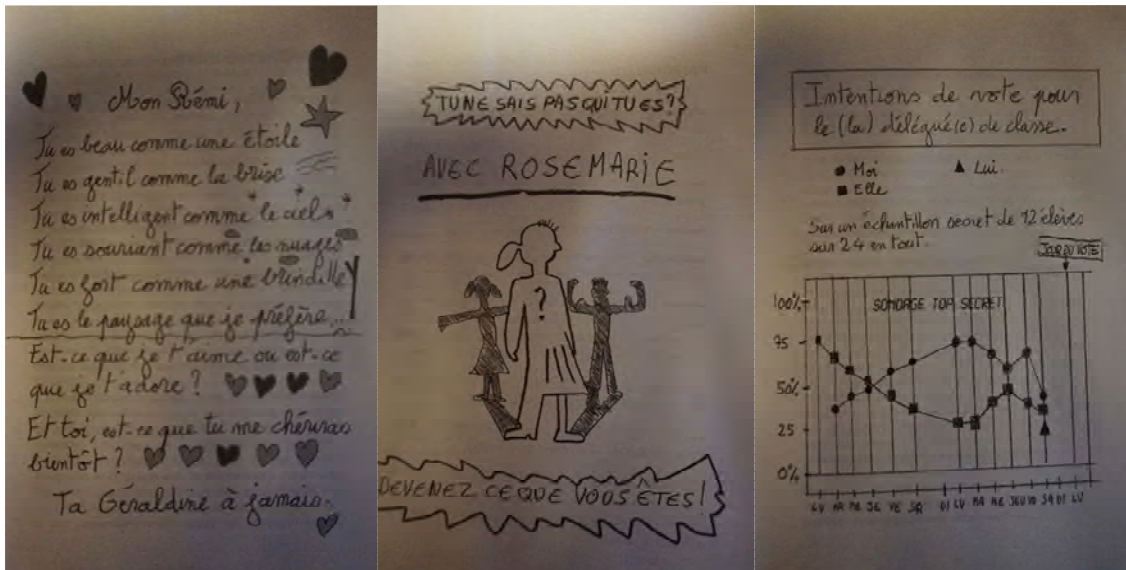 Mon Rémi,
Tu es beau comme une étoile
Tu es gentil comme la brise
Tu es intelligent comme le ciel
Tu es souriant comme les nuages
Tu es fort comme une brindille
Tu es le paysage que je préfère...
Est-ce que je t'aime ou est-ce
que je t'adore ?
Et toi, est-ce que tu me chériras
bientôt ?
Ta Géraldine à jamais.
TU NE SAIS PAS QUI TU ES?
AVEC ROSEMARIE
?
DEVENEZ CE QUE VOUS ÊTES!
Intentions de vote pour
le (la) délégué(e) de classe.
Moi
Lui.
Elle
Sur un échantillon secret de 12 élèves
sur 24 en tout.
JOUR DU VOTE
SONDAGE TOP SECRET
100%
75
50%
25
0%
LU MA ME JE VE SA DI LU MA ME JEU VE SA DI LU